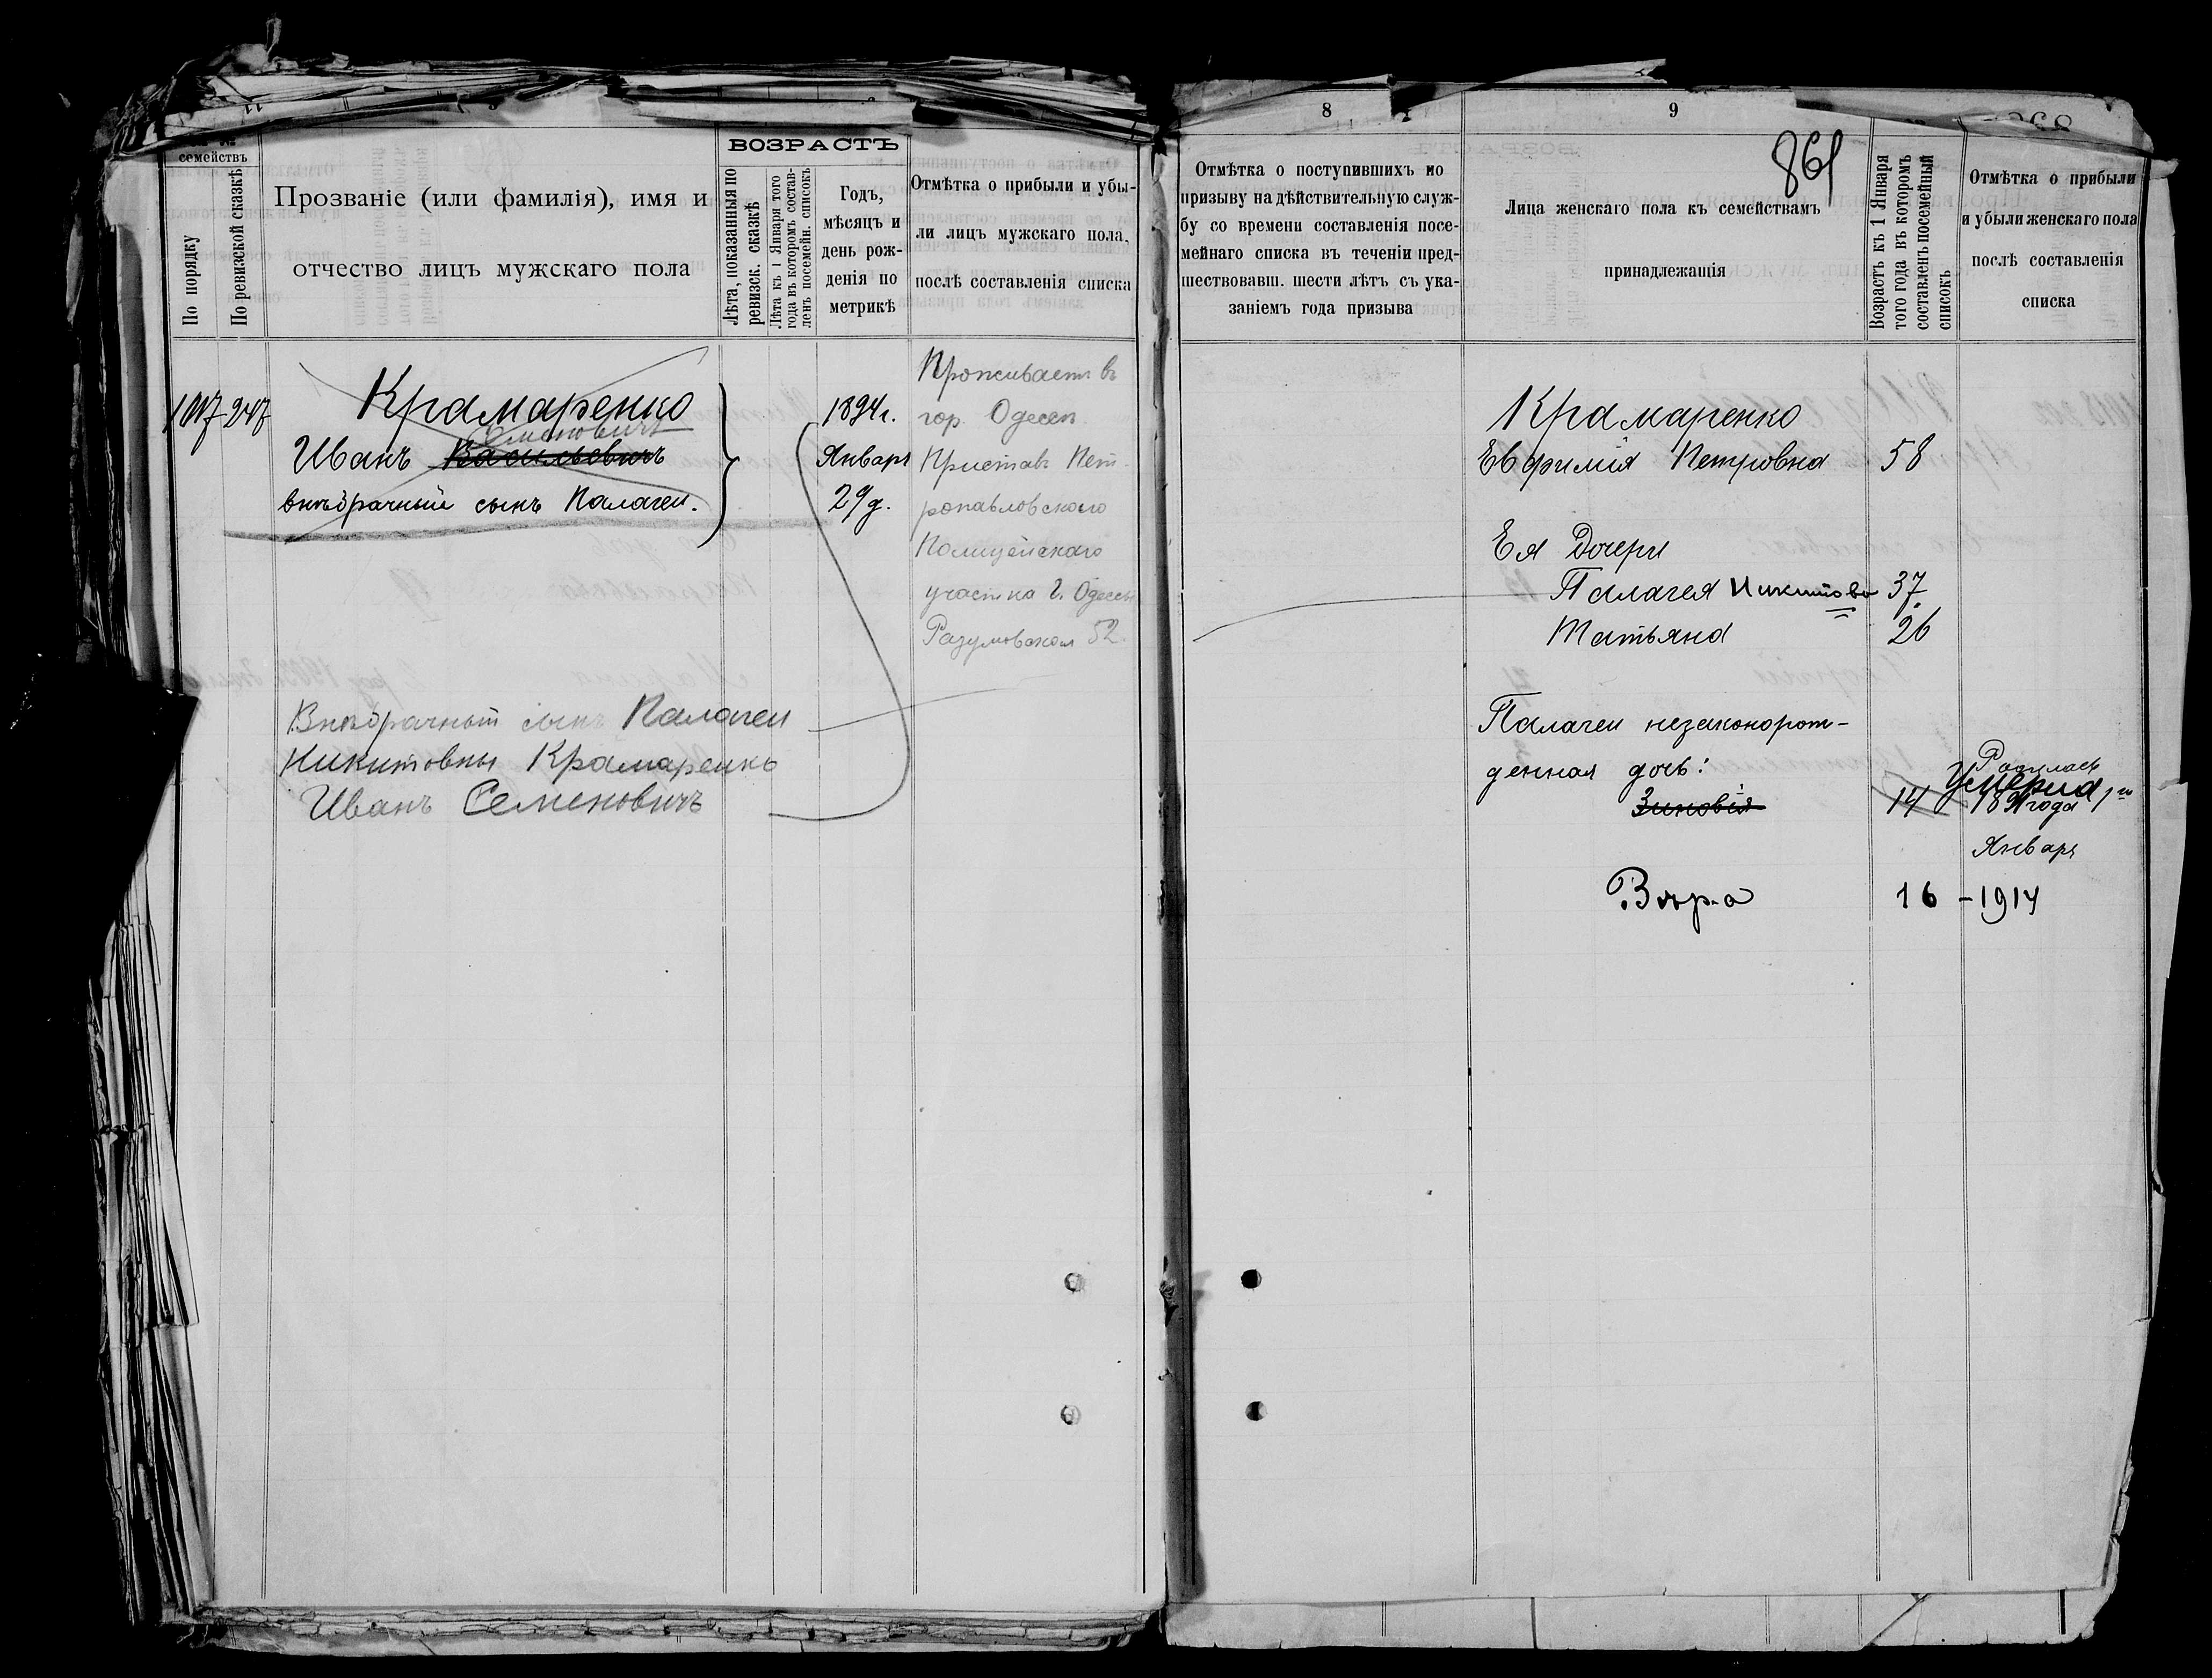 семействъ
По порядку
По ревизской сказкѣ
Прозваніе (или фамилія), имя и
отчество лицъ мужскаго пола
ВОЗРАСТЪ
Лѣта, показанныя по
ревизск. сказкѣ
Лѣта къ 1 Января того
года въ которомъ состав-
ленъ посемейн. списокъ
Годъ,
мѣсяцъ и
день рож-
денія по
метрикѣ
Отмѣтка о прибыли и убы-
ли лицъ мужскаго пола,
послѣ составленія списка
1017 247
Крамаренко
Семеновичъ
Иванъ Васильевичъ
внѣбрачный сынъ Палагеи.
1894 г.
Января
29 д.
Проживаетъ въ
гор. Одессѣ
Приставъ Пет-
ропавловскаго
Полицейскаго
участка г. Одессы
Разумовская 52.
Внѣбрачный сынъ Палагеи
Никитовны Крамаренко
Иванъ Семеновичъ
8
9
861
Отмѣтка о поступившихъ по
призыву на дѣйствительную служ-
бу со времени составленія посе-
мейнаго списка въ теченіи пред-
шествовавш. шести лѣтъ съ ука-
заніемъ года призыва
Лица женскаго пола къ семействамъ
принадлежащія
Возрастъ къ 1 Января
того года въ которомъ
составленъ посемейный
списокъ
Отмѣтка о прибыли
и убыли женскаго пола
послѣ составленія
списка
Крамаренко
Евфимія Петровна 58
Ея Дочери
Палагея Никитова 37
Татьяна 26
Палагеи незаконорож-
денная дочь:
Зиновія 14
Родилась
Умерла
1891 года 1го
Января
Вѣра 16 - 1914